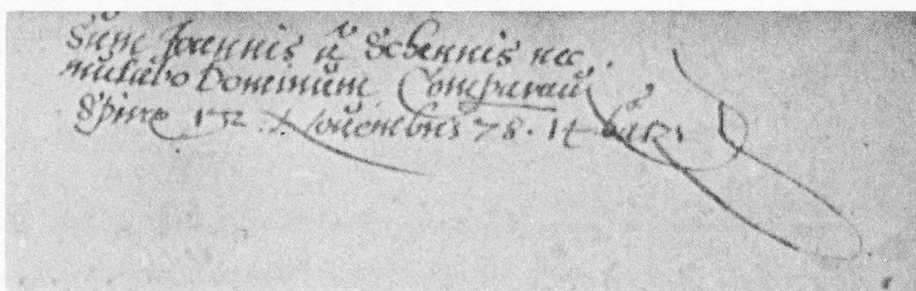 Sum Joannis à Schennis nec
mutabo Dominum. Comparaui
Spirae Nouembris 78. 14